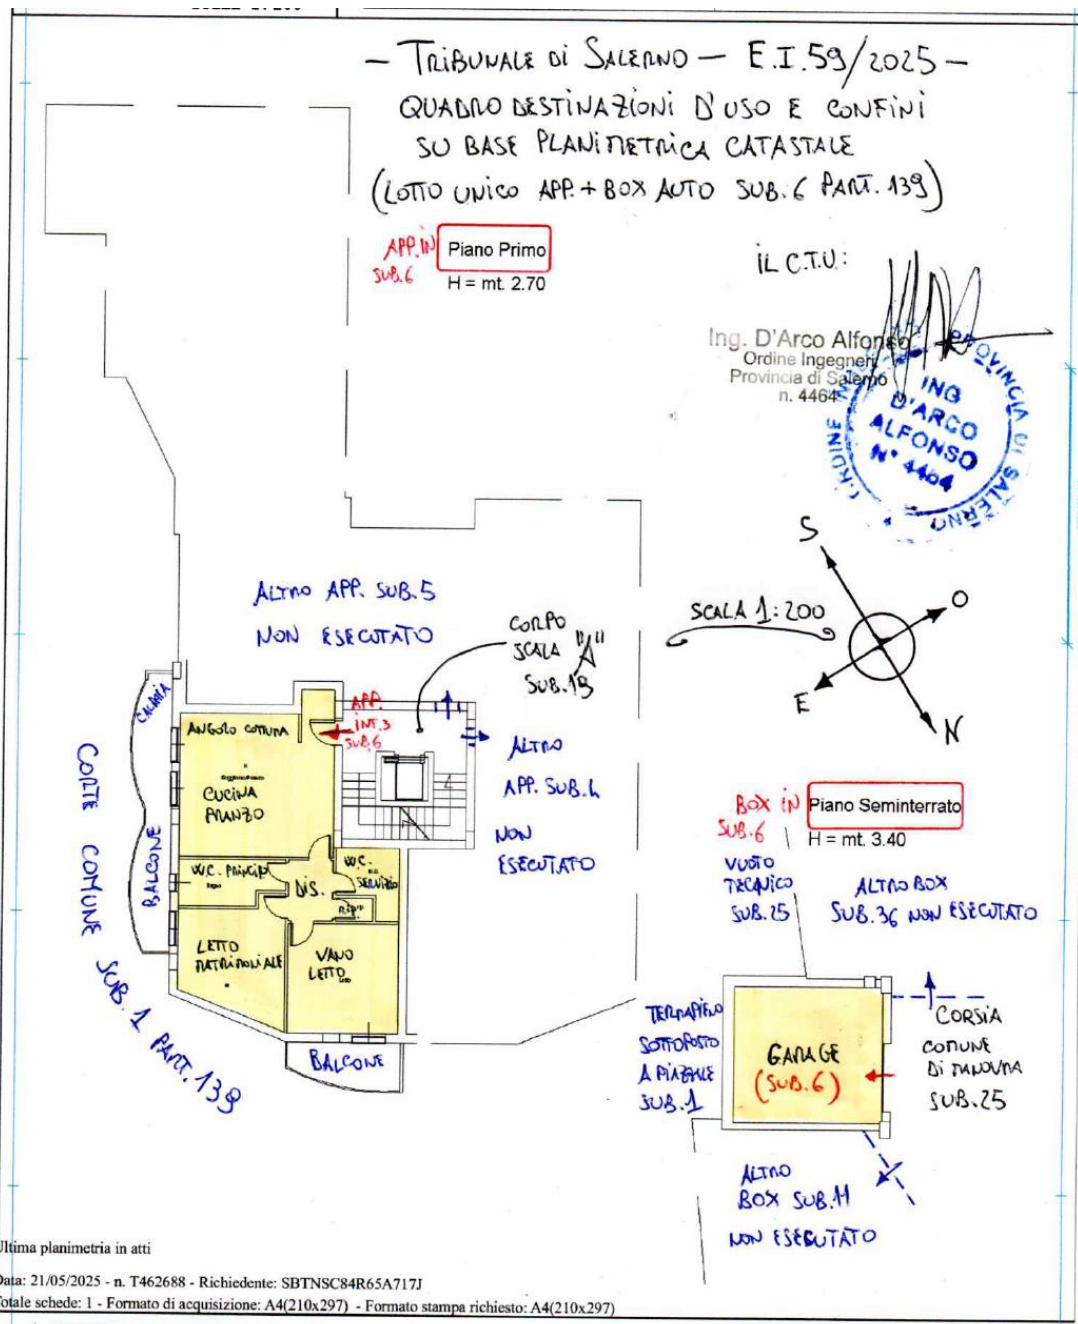 - TRIBUNALE DI SALERNO - E.I.59/2025 -
QUADRO DESTINAZIONI D'USO E CONFINI
SU BASE PLANIMETRICA CATASTALE
(LOTTO UNICO APP.+BOX AUTO SUB.6 PART.139)
APP.IN
SUB.6
Piano Primo
H = mt. 2.70
IL C.T.U.:
Ing. D'Arco Alfonso
Ordine Ingegneri
Provincia di Salerno
n. 4464
PROVINCIA DI SALERNO
ING
D'ARCO
ALFONSO
N° 4464
S
O
E
N
SCALA 1:200
ALTRO APP. SUB.5
NON ESECUTATO
CORPO
SCALA "A"
SUB.19
APP.
INT.3
SUB.6
ANGOLO COTTURA
CUCINA
PRANZO
BALCONE
CORTE COMUNE SUB.1 PART.139
W.C. PRINCIP.
DIS.
W.C.
SERVIZIO
RIP.
LETTO
MATRIMONIALE
VANO
LETTO
BALCONE
ALTRO
APP. SUB.4
NON
ESECUTATO
BOX IN
SUB.6
Piano Seminterrato
H = mt. 3.40
VUOTO
TECNICO
SUB.25
ALTRO BOX
SUB.36 NON ESECUTATO
TERRAPIENO
SOTTOPOSTO
A PIAZZALE
SUB.1
GARAGE
(SUB.6)
CORSIA
COMUNE
DI MANOVRA
SUB.25
ALTRO
BOX SUB.11
NON ESECUTATO
Ultima planimetria in atti
Data: 21/05/2025 - n. T462688 - Richiedente: SBTNSC84R65A717J
Totale schede: 1 - Formato di acquisizione: A4(210x297) - Formato stampa richiesto: A4(210x297)